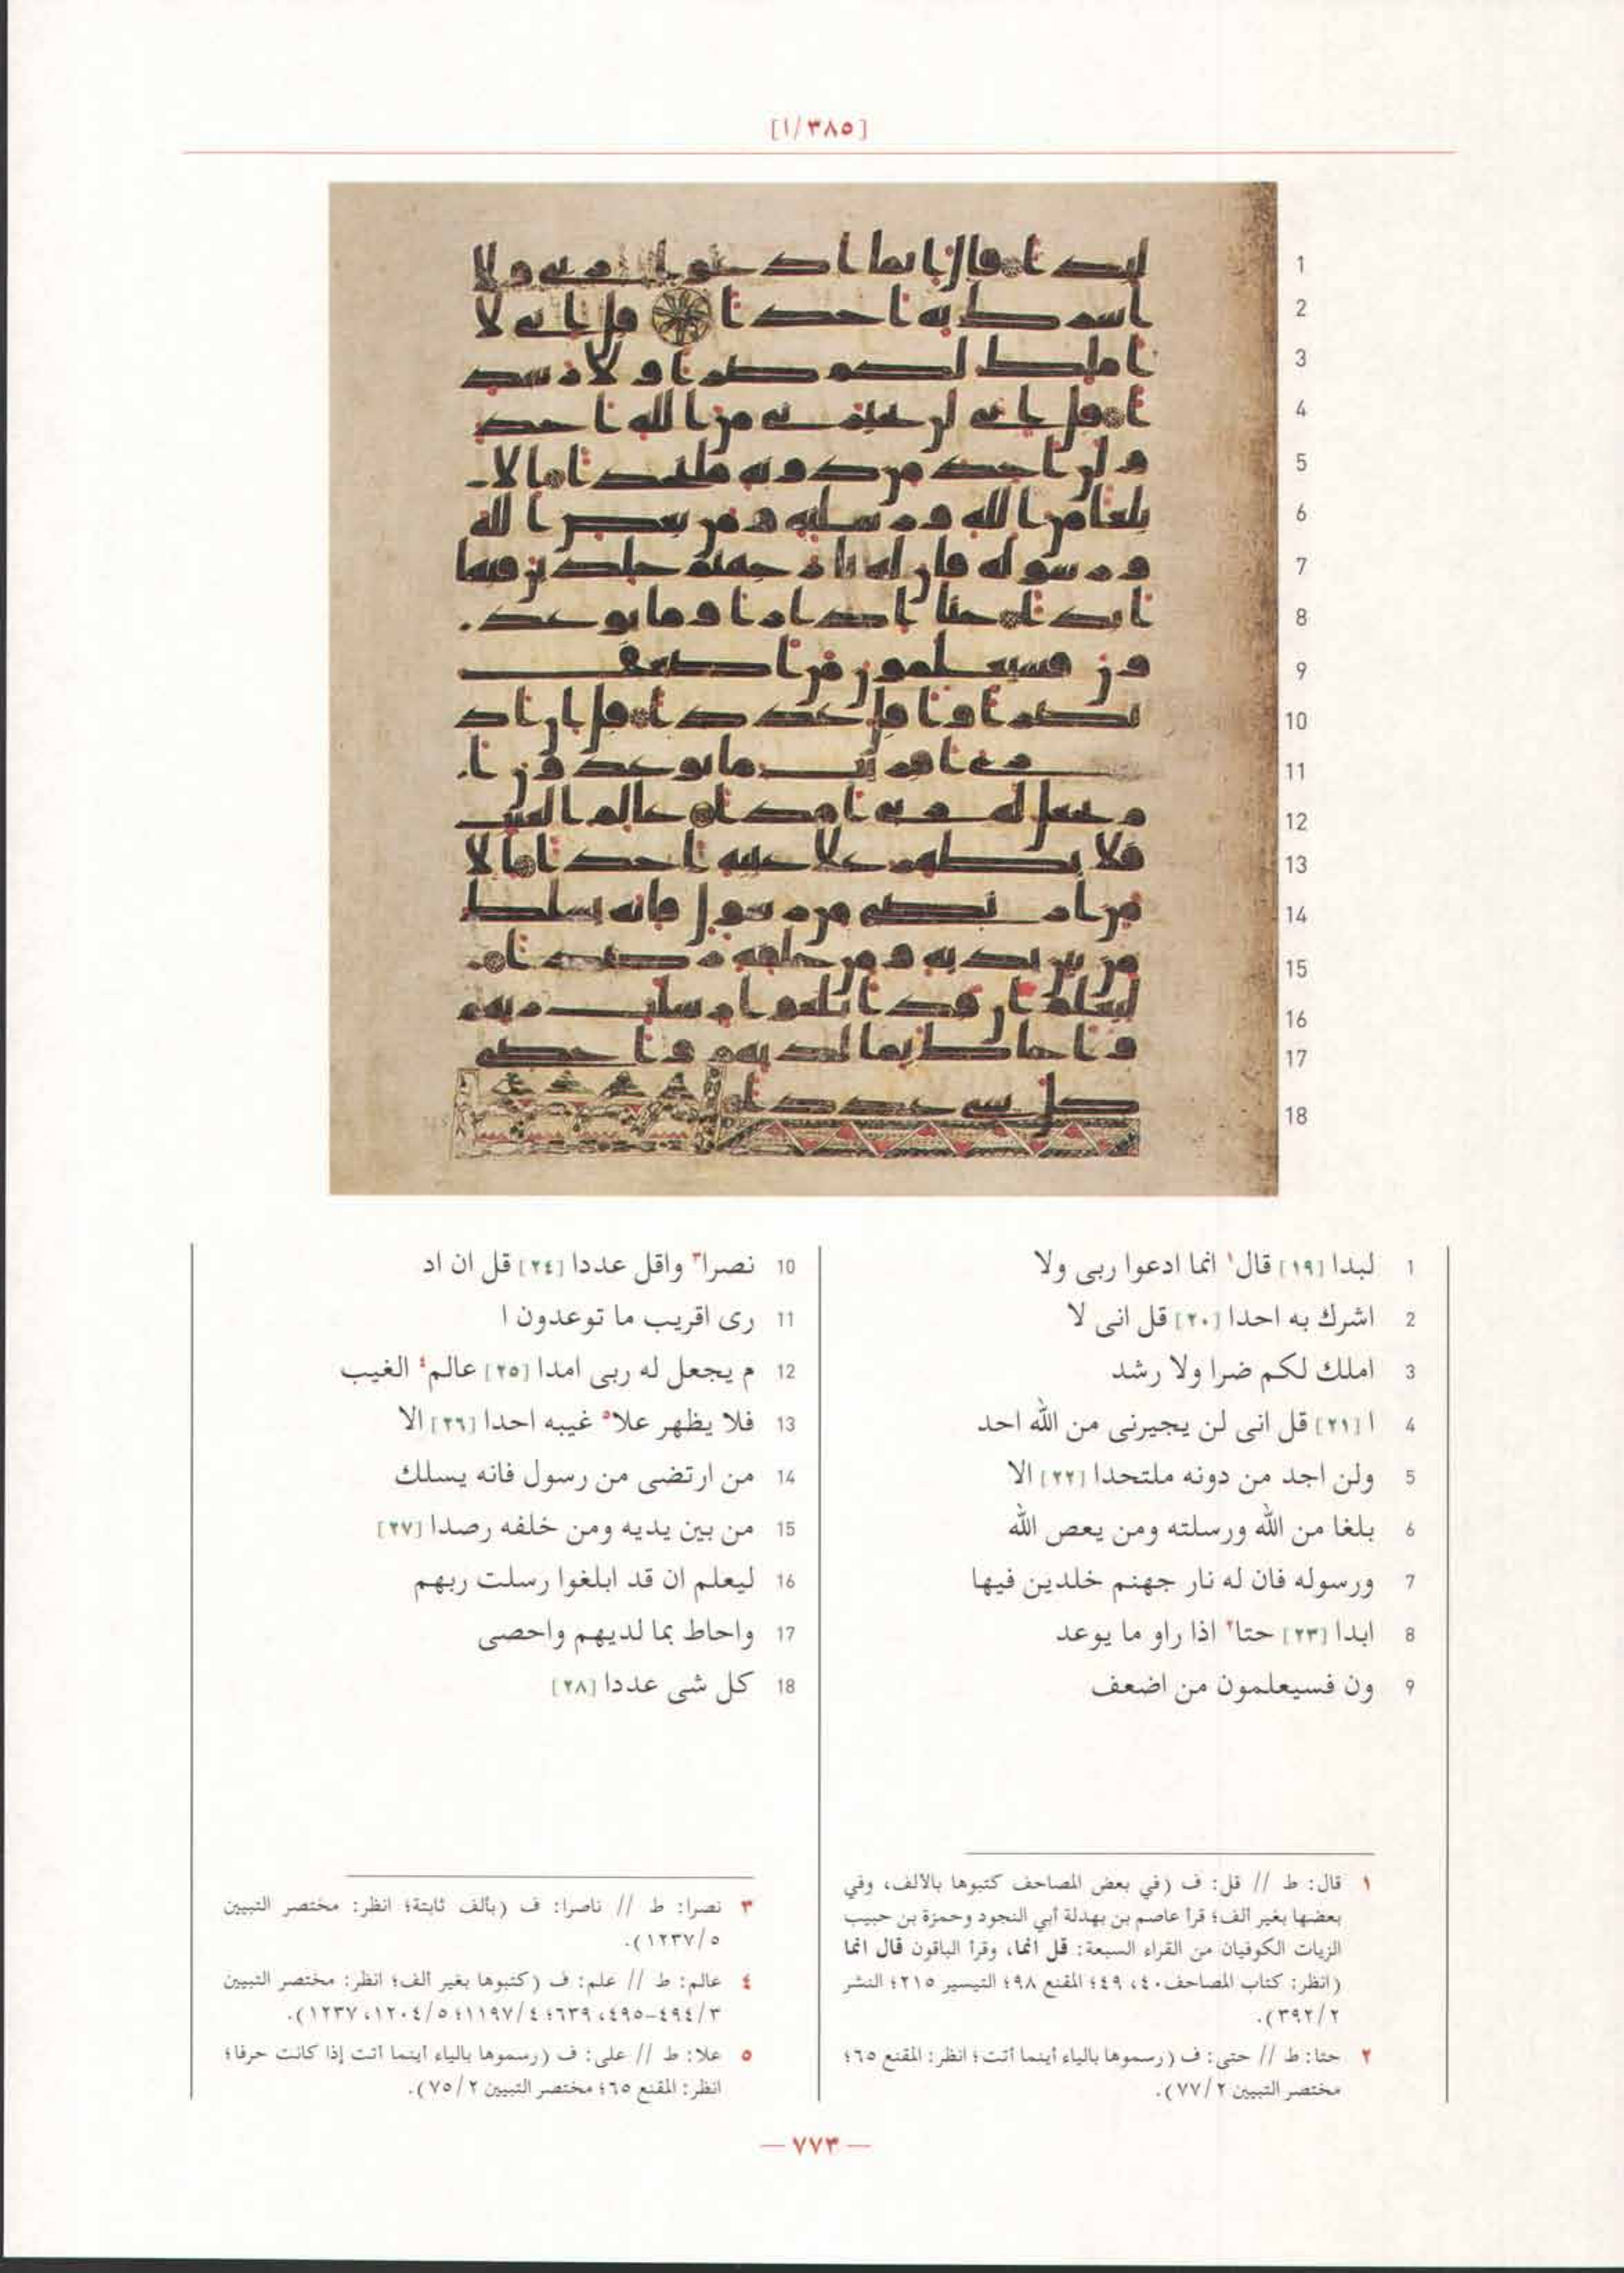 [٣٨٥/ا]
1 لبدا [١٩] قال١ انما ادعوا ربى ولا
2 اشرك به احدا [٢٠] قل انى لا
3 املك لكم ضرا ولا رشد
4 ا [٢١] قل انى لن يجيرنى من الله احد
5 ولن اجد من دونه ملتحدا [٢٢] الا
6 بلغا من الله ورسلته ومن يعص الله
7 ورسوله فان له نار جهنم خلدين فيها
8 ابدا [٢٣] حتا٢ اذا راو ما يوعد
9 ون فسيعلمون من اضعف
10 نصرا٣ واقل عددا [٢٤] قل ان اد
11 رى اقريب ما توعدون ا
12 م يجعل له ربى امدا [٢٥] عالم٤ الغيب
13 فلا يظهر علا٥ غيبه احدا [٢٦] الا
14 من ارتضى من رسول فانه يسلك
15 من بين يديه ومن خلفه رصدا [٢٧]
16 ليعلم ان قد ابلغوا رسلت ربهم
17 واحاط بما لديهم واحصى
18 كل شى عددا [٢٨]
١ قال: ط // قل: ف (في بعض المصاحف كتبوها بالألف، وفي
بعضها بغير ألف؛ قرأ عاصم بن بهدلة أبي النجود وحمزة بن حبيب
الزيات الكوفيان من القراء السبعة: قل انما، وقرأ الباقون قال انما
(انظر: كتاب المصاحف ٤٠، ٤٩؛ المقنع ٩٨؛ التيسير ٢١٥؛ النشر
٣٩٢/٢).
٢ حتا: ط // حتى: ف (رسموها بالياء أينما أتت؛ انظر: المقنع ٦٥؛
مختصر التبيين ٧٧/٢).
٣ نصرا: ط // ناصرا: ف (بألف ثابتة؛ انظر: مختصر التبيين
١٢٣٧/٥).
٤ عالم: ط // علم: ف (كتبوها بغير ألف؛ انظر: مختصر التبيين
٤٩٤/٣-٤٩٥، ٦٣٩؛ ١١٩٧/٤؛ ١٢٠٤/٥، ١٢٣٧).
٥ علا: ط // على: ف (رسموها بالياء أينما أتت إذا كانت حرفا؛
انظر: المقنع ٦٥؛ مختصر التبيين ٧٥/٢).
— ٧٧٣ —